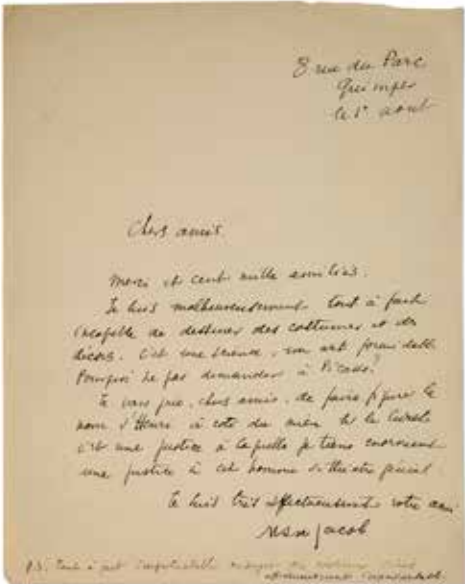 8 rue du Parc
Quimper
le 1er août
Chers amis
Merci et cent mille amitiés.
Je suis malheureusement tout à fait
incapable de dessiner des costumes et des
décors. C'est une science, un art formidable
Pourquoi ne pas demander à Picasso?
Je vous prie, chers amis, de faire figurer le
nom d'Henri à coté du mien sur le livret
c'est une justice à laquelle je tiens
une justice à cet homme de théâtre génial.
Je suis très affectueusement votre ami
Max Jacob
P.S. Tout à fait